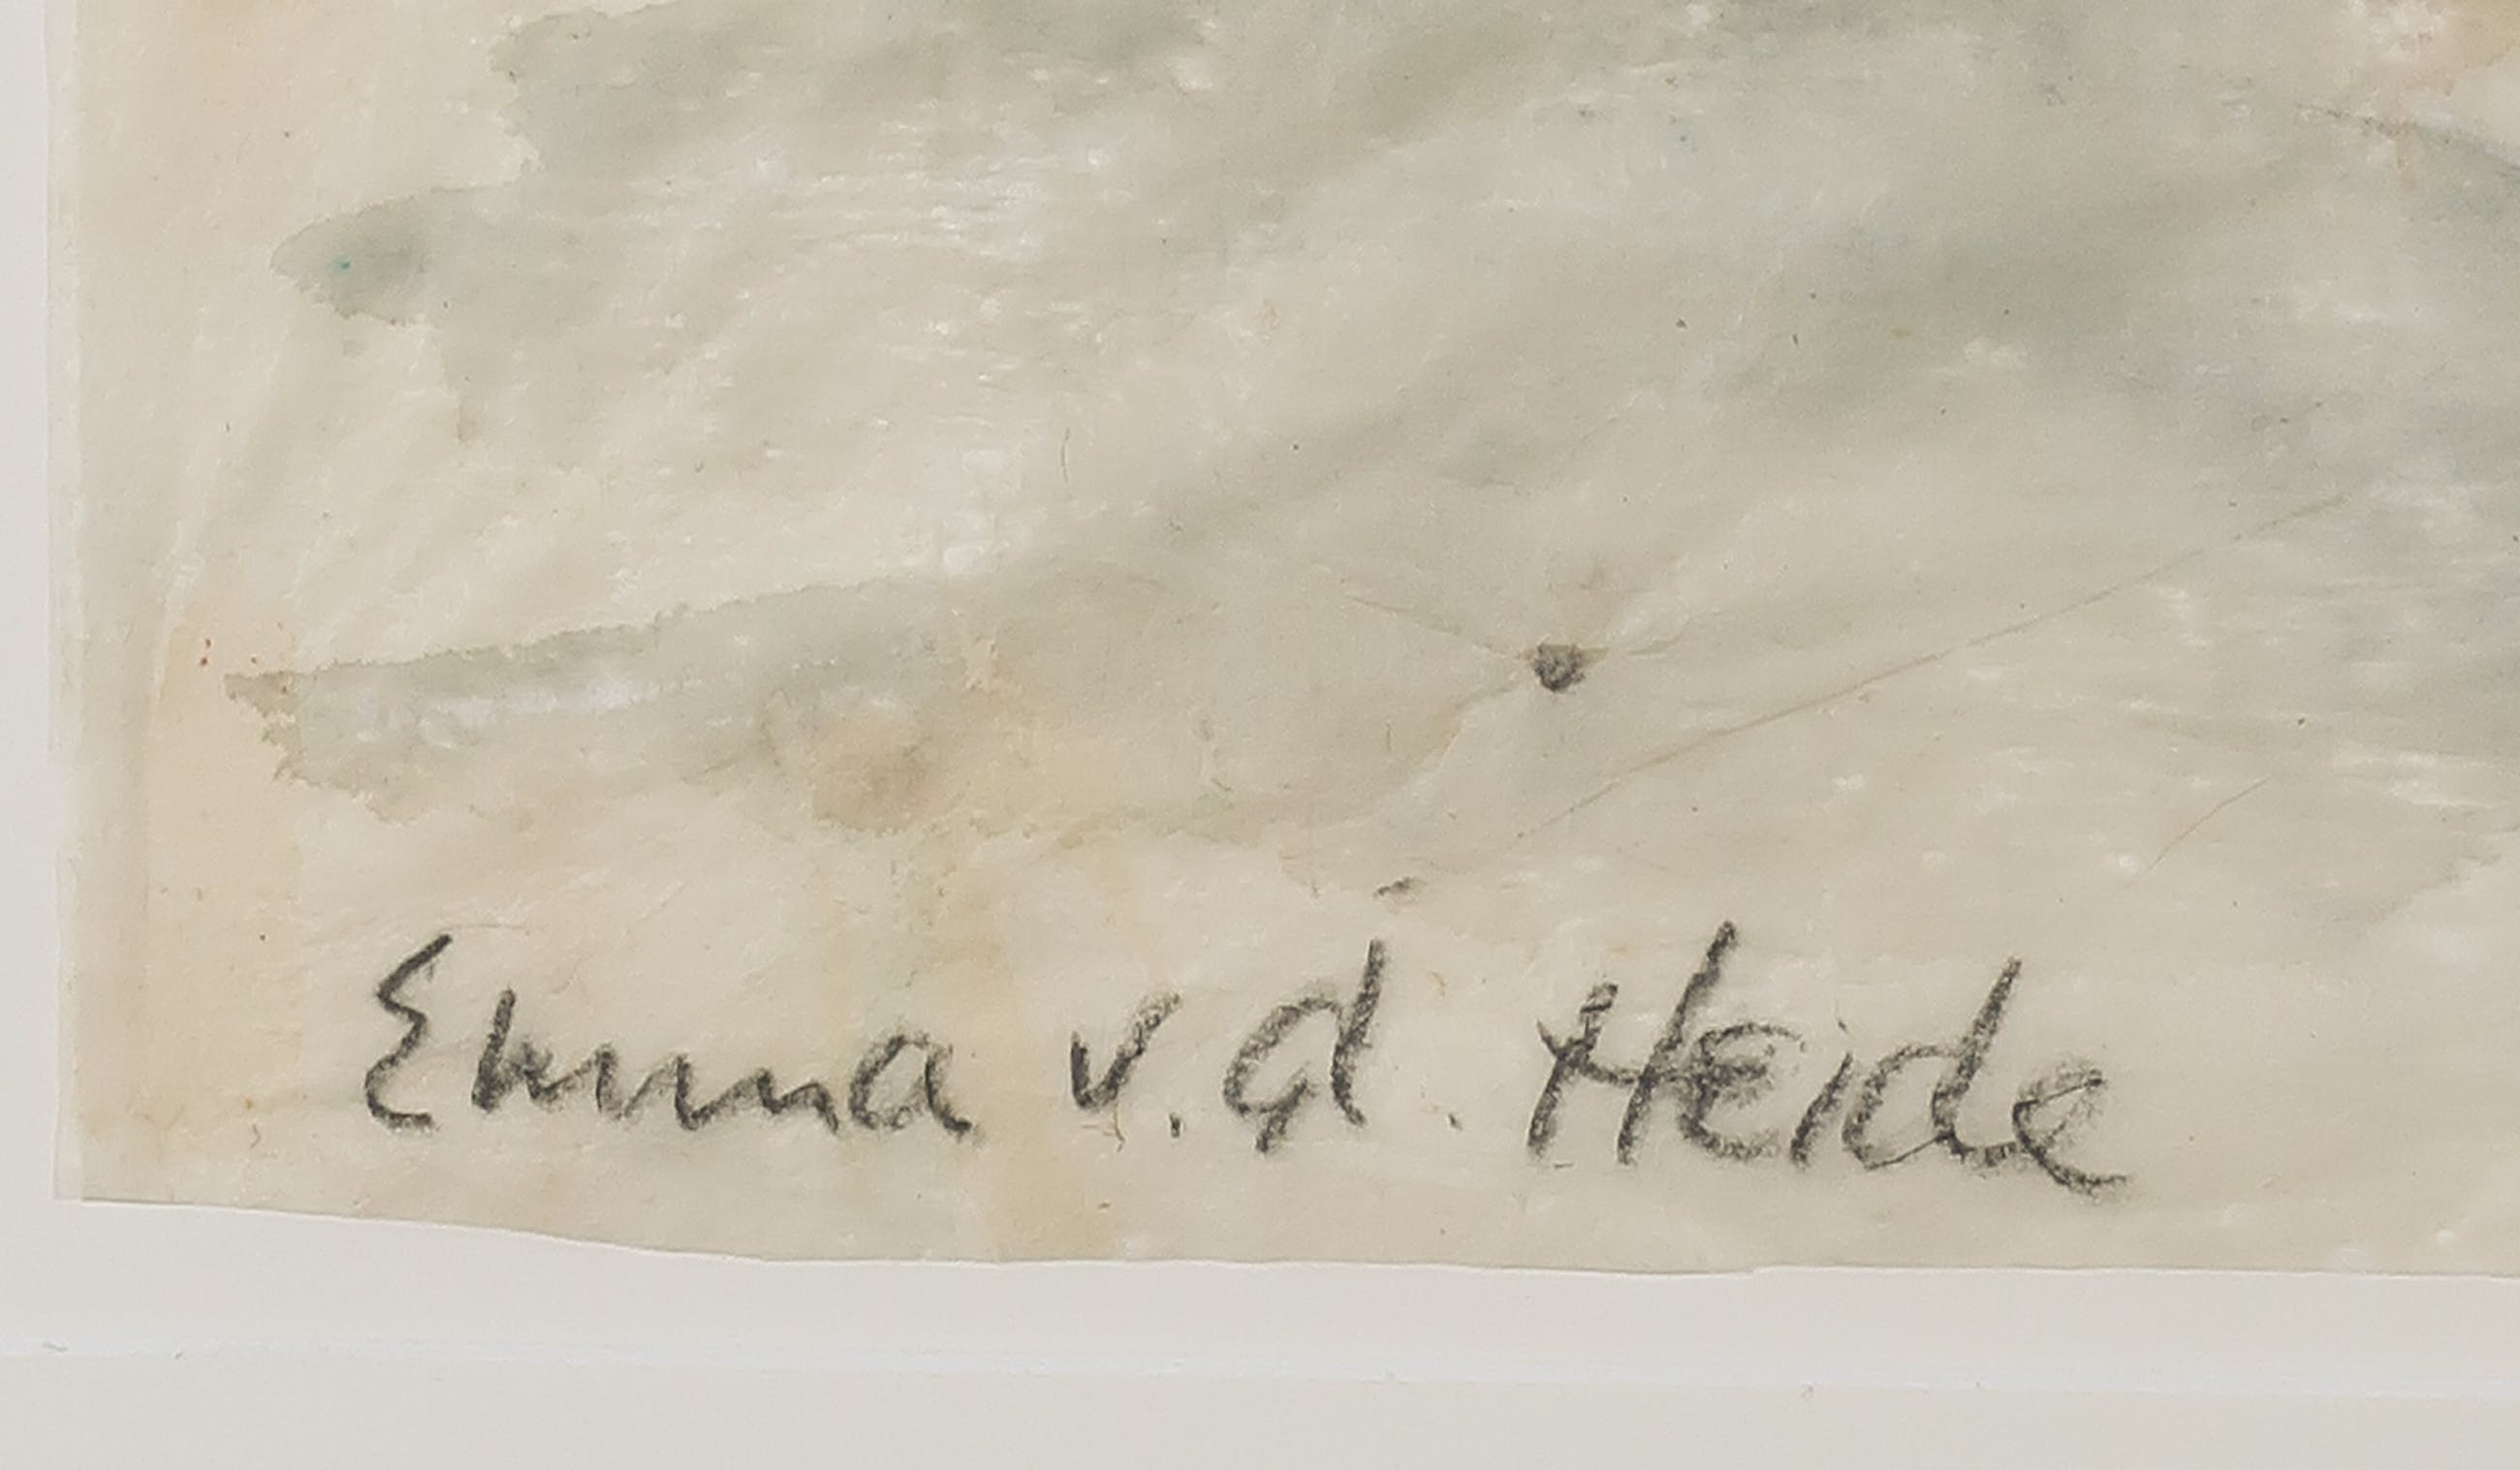 Emma v.d. Heide